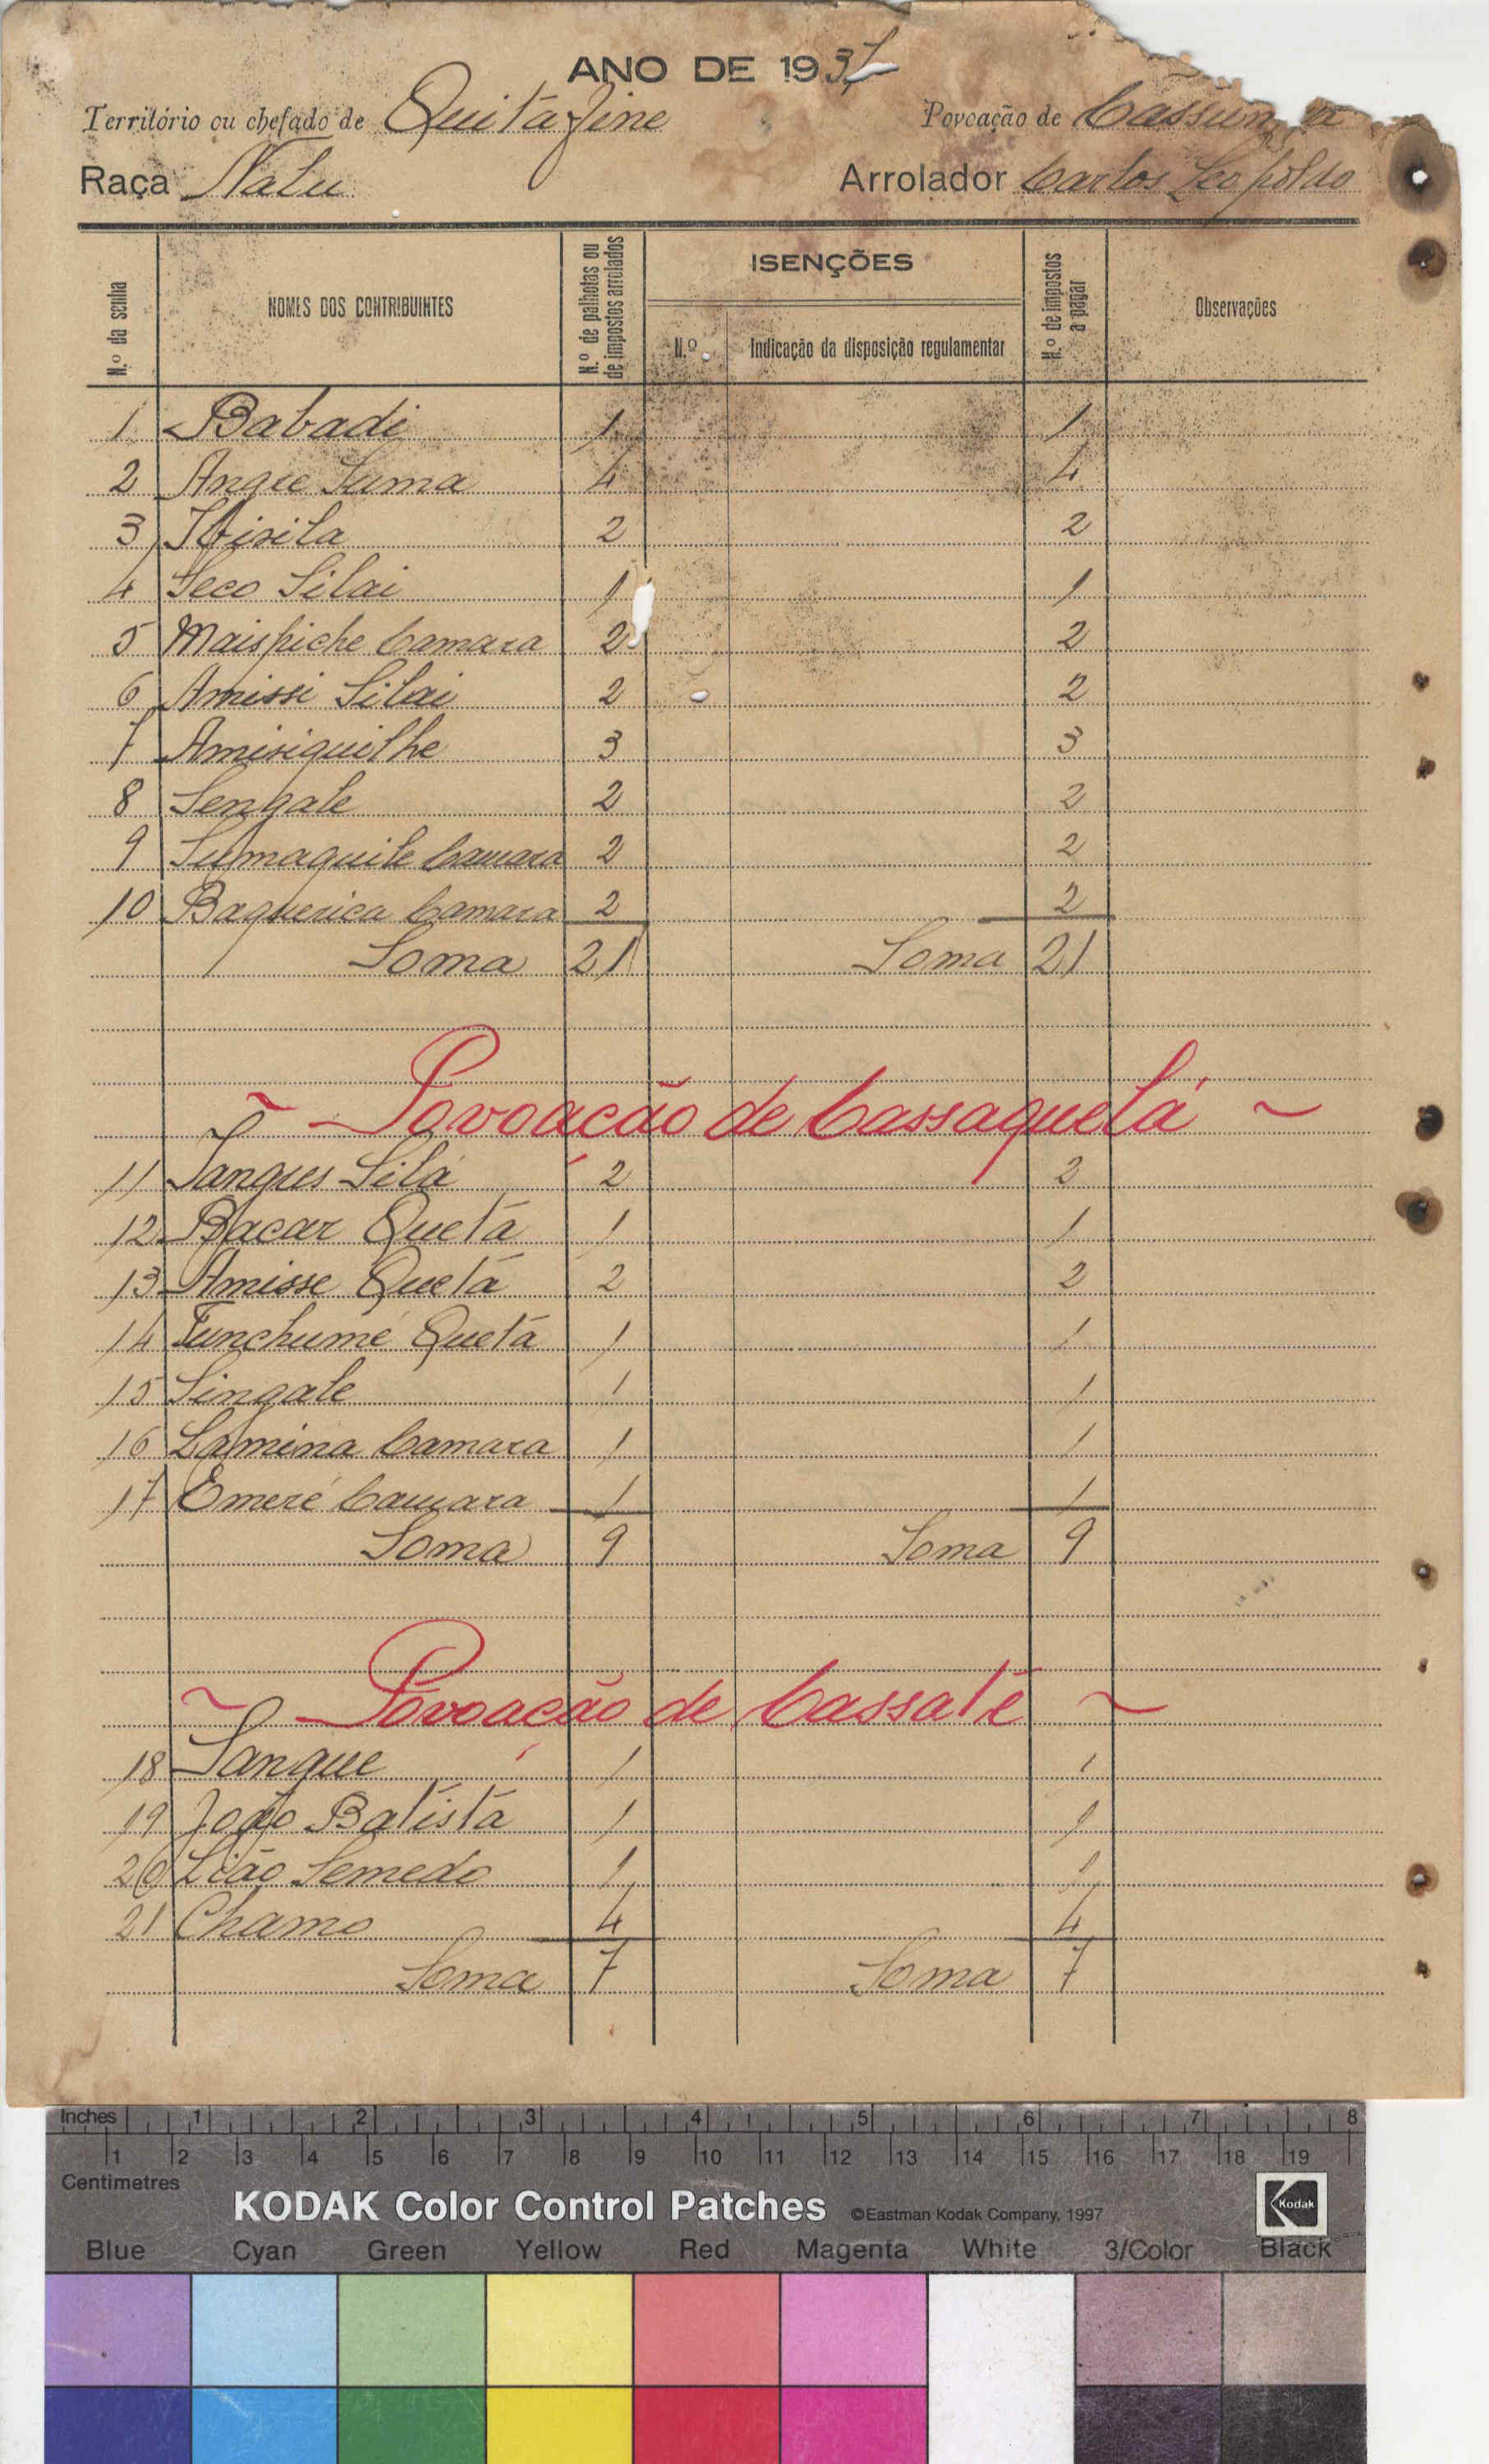 ANO DE 1937
Território ou chefado de Quitafine Povoação de
Raça Nalu Arrolador Carlos Leopoldo
N.º da senha NOMES DOS CONTRIBUINTES N.º de palhotas ou de impostos arrolados ISENÇÕES N.º Indicação da disposição regulamentar N.º de impostos a pagar Observações
1 Babadi 1 1
2 Angue Suma 4 4
3 2 2
4 Seco Silai 1 1
5 Maispiche Camara 2 2
6 Amissi Silai 2 2
7 Amisiquilhe 3 3
8 Sengale 2 2
9 Sumaquile Camara 2 2
10 Baquerica Camara 2 2
Soma 21 Soma 21
~ Povoação de Cassaquelá ~
11 Sangus Silá 2 2
12 Bacar Quetá 1 1
13 Amisse Quetá 2 2
14 Funchumé Quetá 1 1
15 Singale 1 1
16 Lamina Camara 1 1
17 Emeré Camara 1 1
Soma 9 Soma 9
~ Povoação de Cassalé ~
18 Sangue 1 1
19 João Batista 1 1
20 Lião Semedo 1 1
21 Chamo 4 4
Soma 7 Soma 7
Inches 1 2 3 4 5 6 7 8
1 2 3 4 5 6 7 8 9 10 11 12 13 14 15 16 17 18 19
Centimetres
KODAK Color Control Patches ©Eastman Kodak Company, 1997 Kodak
Blue Cyan Green Yellow Red Magenta White 3/Color Black